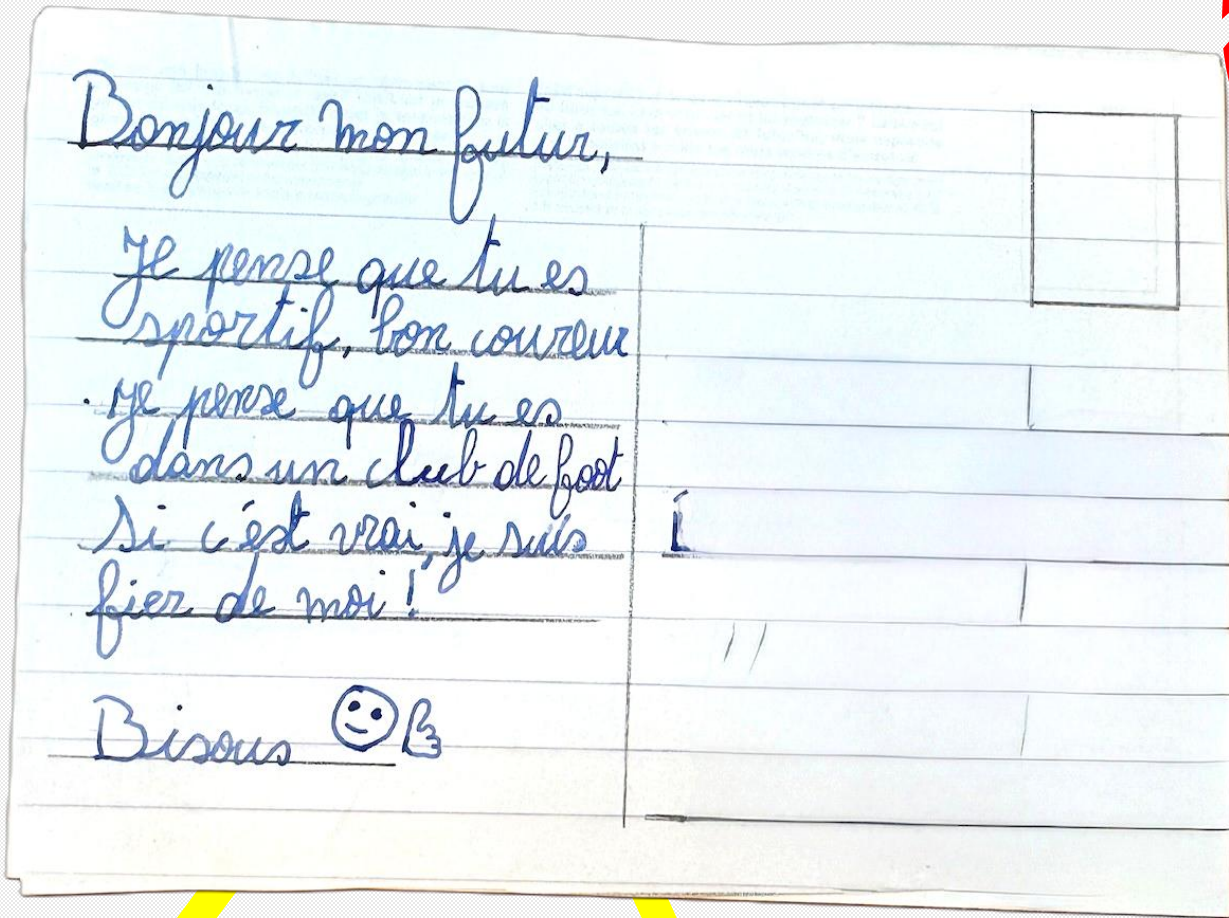 Bonjour mon futur,
Je pense que tu es
sportif, bon coureur
. je pense que tu es
dans un club de foot
si c'est vrai, je suis
fier de moi !
Bisous